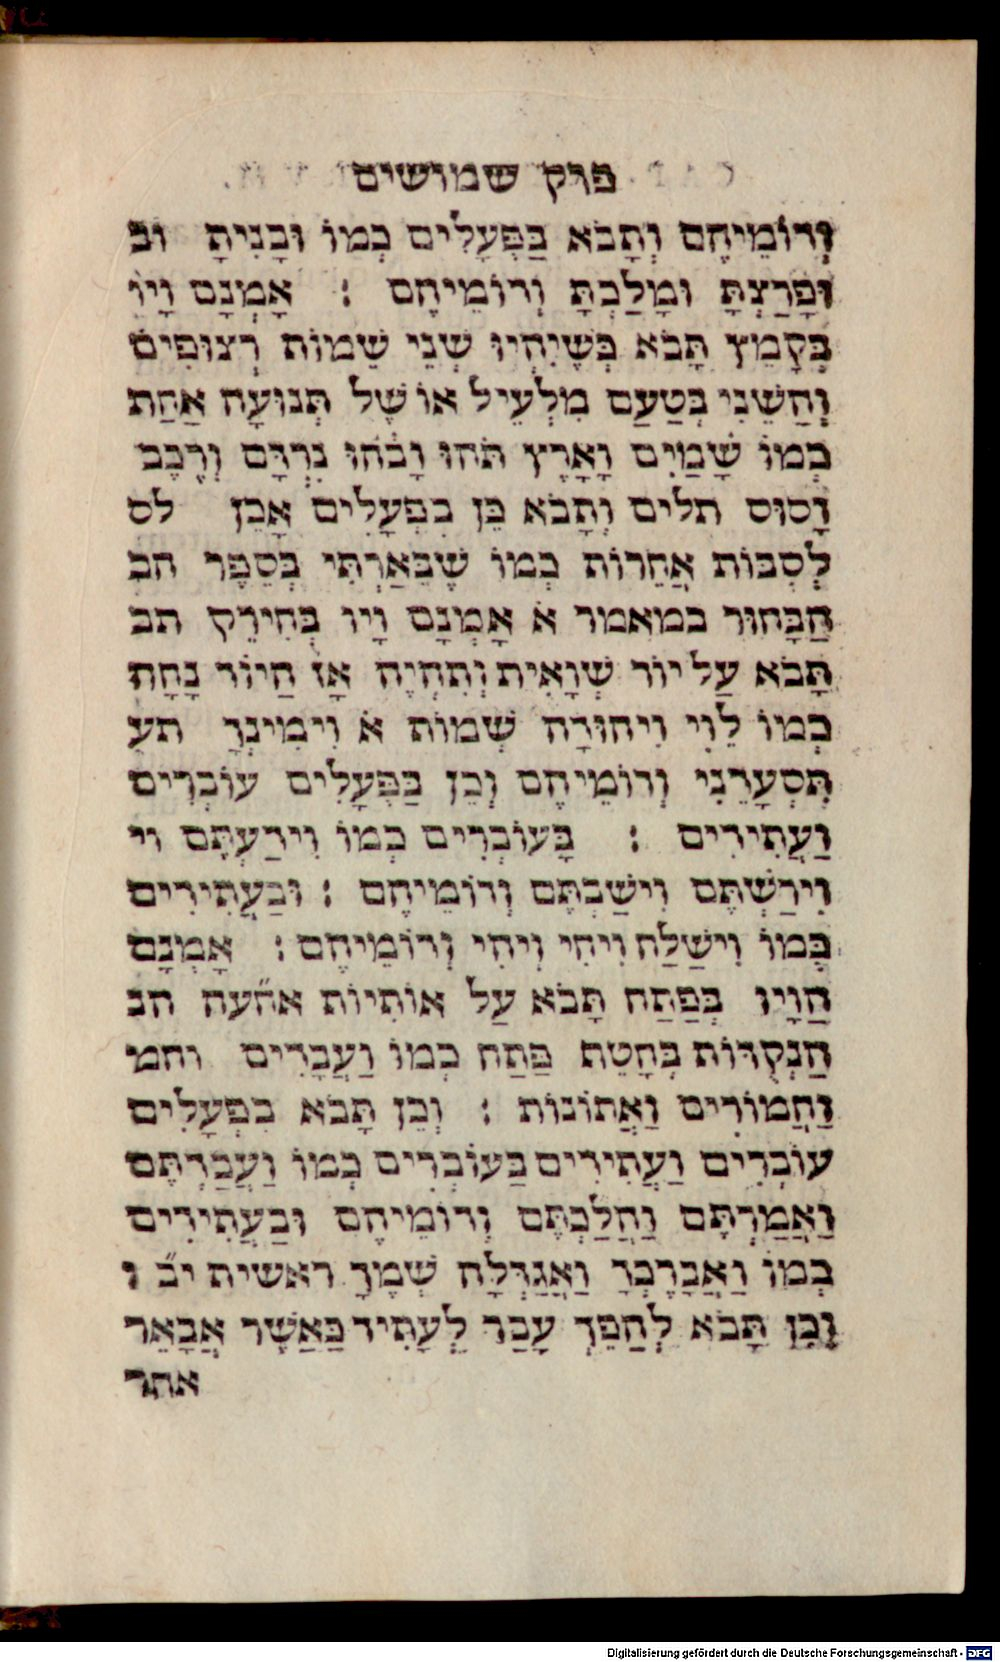 פרק שמושים
וְדוֹמֵיהֶם וְתָבֹא בַּפְּעָלִים כְּמוֹ וּבָנִיתָ וּב
וּפָרַצְתָּ וּמָלַכְתָּ וְדוֹמֵיהֶם : אָמְנָם וָיו
בְּקָמֵץ תָּבֹא כְּשֶׁיִּהְיוּ שְׁנֵי שֵׁמוֹת רְצוּפִים
וְהַשֵּׁנִי בְּטַעַם מִלְעֵיל אוֹ שֶׁל תְּנוּעָה אַחַת
כְּמוֹ שָׁמַיִם וָאָרֶץ תֹּהוּ וָבֹהוּ נִרְדָּם וְרֶכֶב
וָסוּס תלים וְתָבֹא כֵּן בִפְּעָלִים אָכֵן לס
לְסִבּוֹת אֲחֵרוֹת כְּמוֹ שֶׁבֵּאַרְתִּי בְּסֵפֶר הב
הַבָּחוּר במאמר א אָמְנָם וָיו בְּחִירֵק תב
תָּבֹא עַל יוֹד שְׁוָאִית וְתִהְיֶה אָז הַיוֹד נָחָה
כְּמוֹ לֵוִי וִיהוּדָה שְׁמוֹת א וִימִינְךָ תע
תִּסְעָדֵנִי וְדוֹמֵיהֶם וְכֵן בַּפְּעָלִים עוֹבְרִים
וַעֲתִידִים : בָּעוֹבְרִים כְּמוֹ וִידַעְתֶּם וי
וִירַשְׁתֶּם וִישַׁבְתֶּם וְדוֹמֵיהֶם : וּבַעֲתִידִים
כְּמוֹ וִישַׁלַּח וִיהִי וִיחִי וְדוֹמֵיהֶם : אָמְנָם
הַוָּיו בְּפַתַח תָּבֹא עַל אוֹתִיוֹת אה״עה הנ
הַנְקֻדּוֹת בְּחָטֵף פַּתַח כְּמוֹ וַעֲבָדִים וחמ
וַחֲמוֹרִים וַאֲתוֹנוֹת : וְכֵן תָּבֹא בִפְּעָלִים
עוֹבְרִים וַעֲתִידִים בַּעוֹבְרִים כְּמוֹ וַעֲבַרְתֶּם
וַאֲמַרְתֶּם וַהֲלַכְתֶּם וְדוֹמֵיהֶם וּבַעֲתִידִים
כְּמוֹ וַאֲבָרֶכְךָ וַאֲגַדְּלָה שְׁמֶךָ ראשית י״ב ו
וְכֵן תָּבֹא לְהַפֵּךְ עָבַר לְעָתִיד כַּאֲשֶׁר אֲבָאֵר
אחר